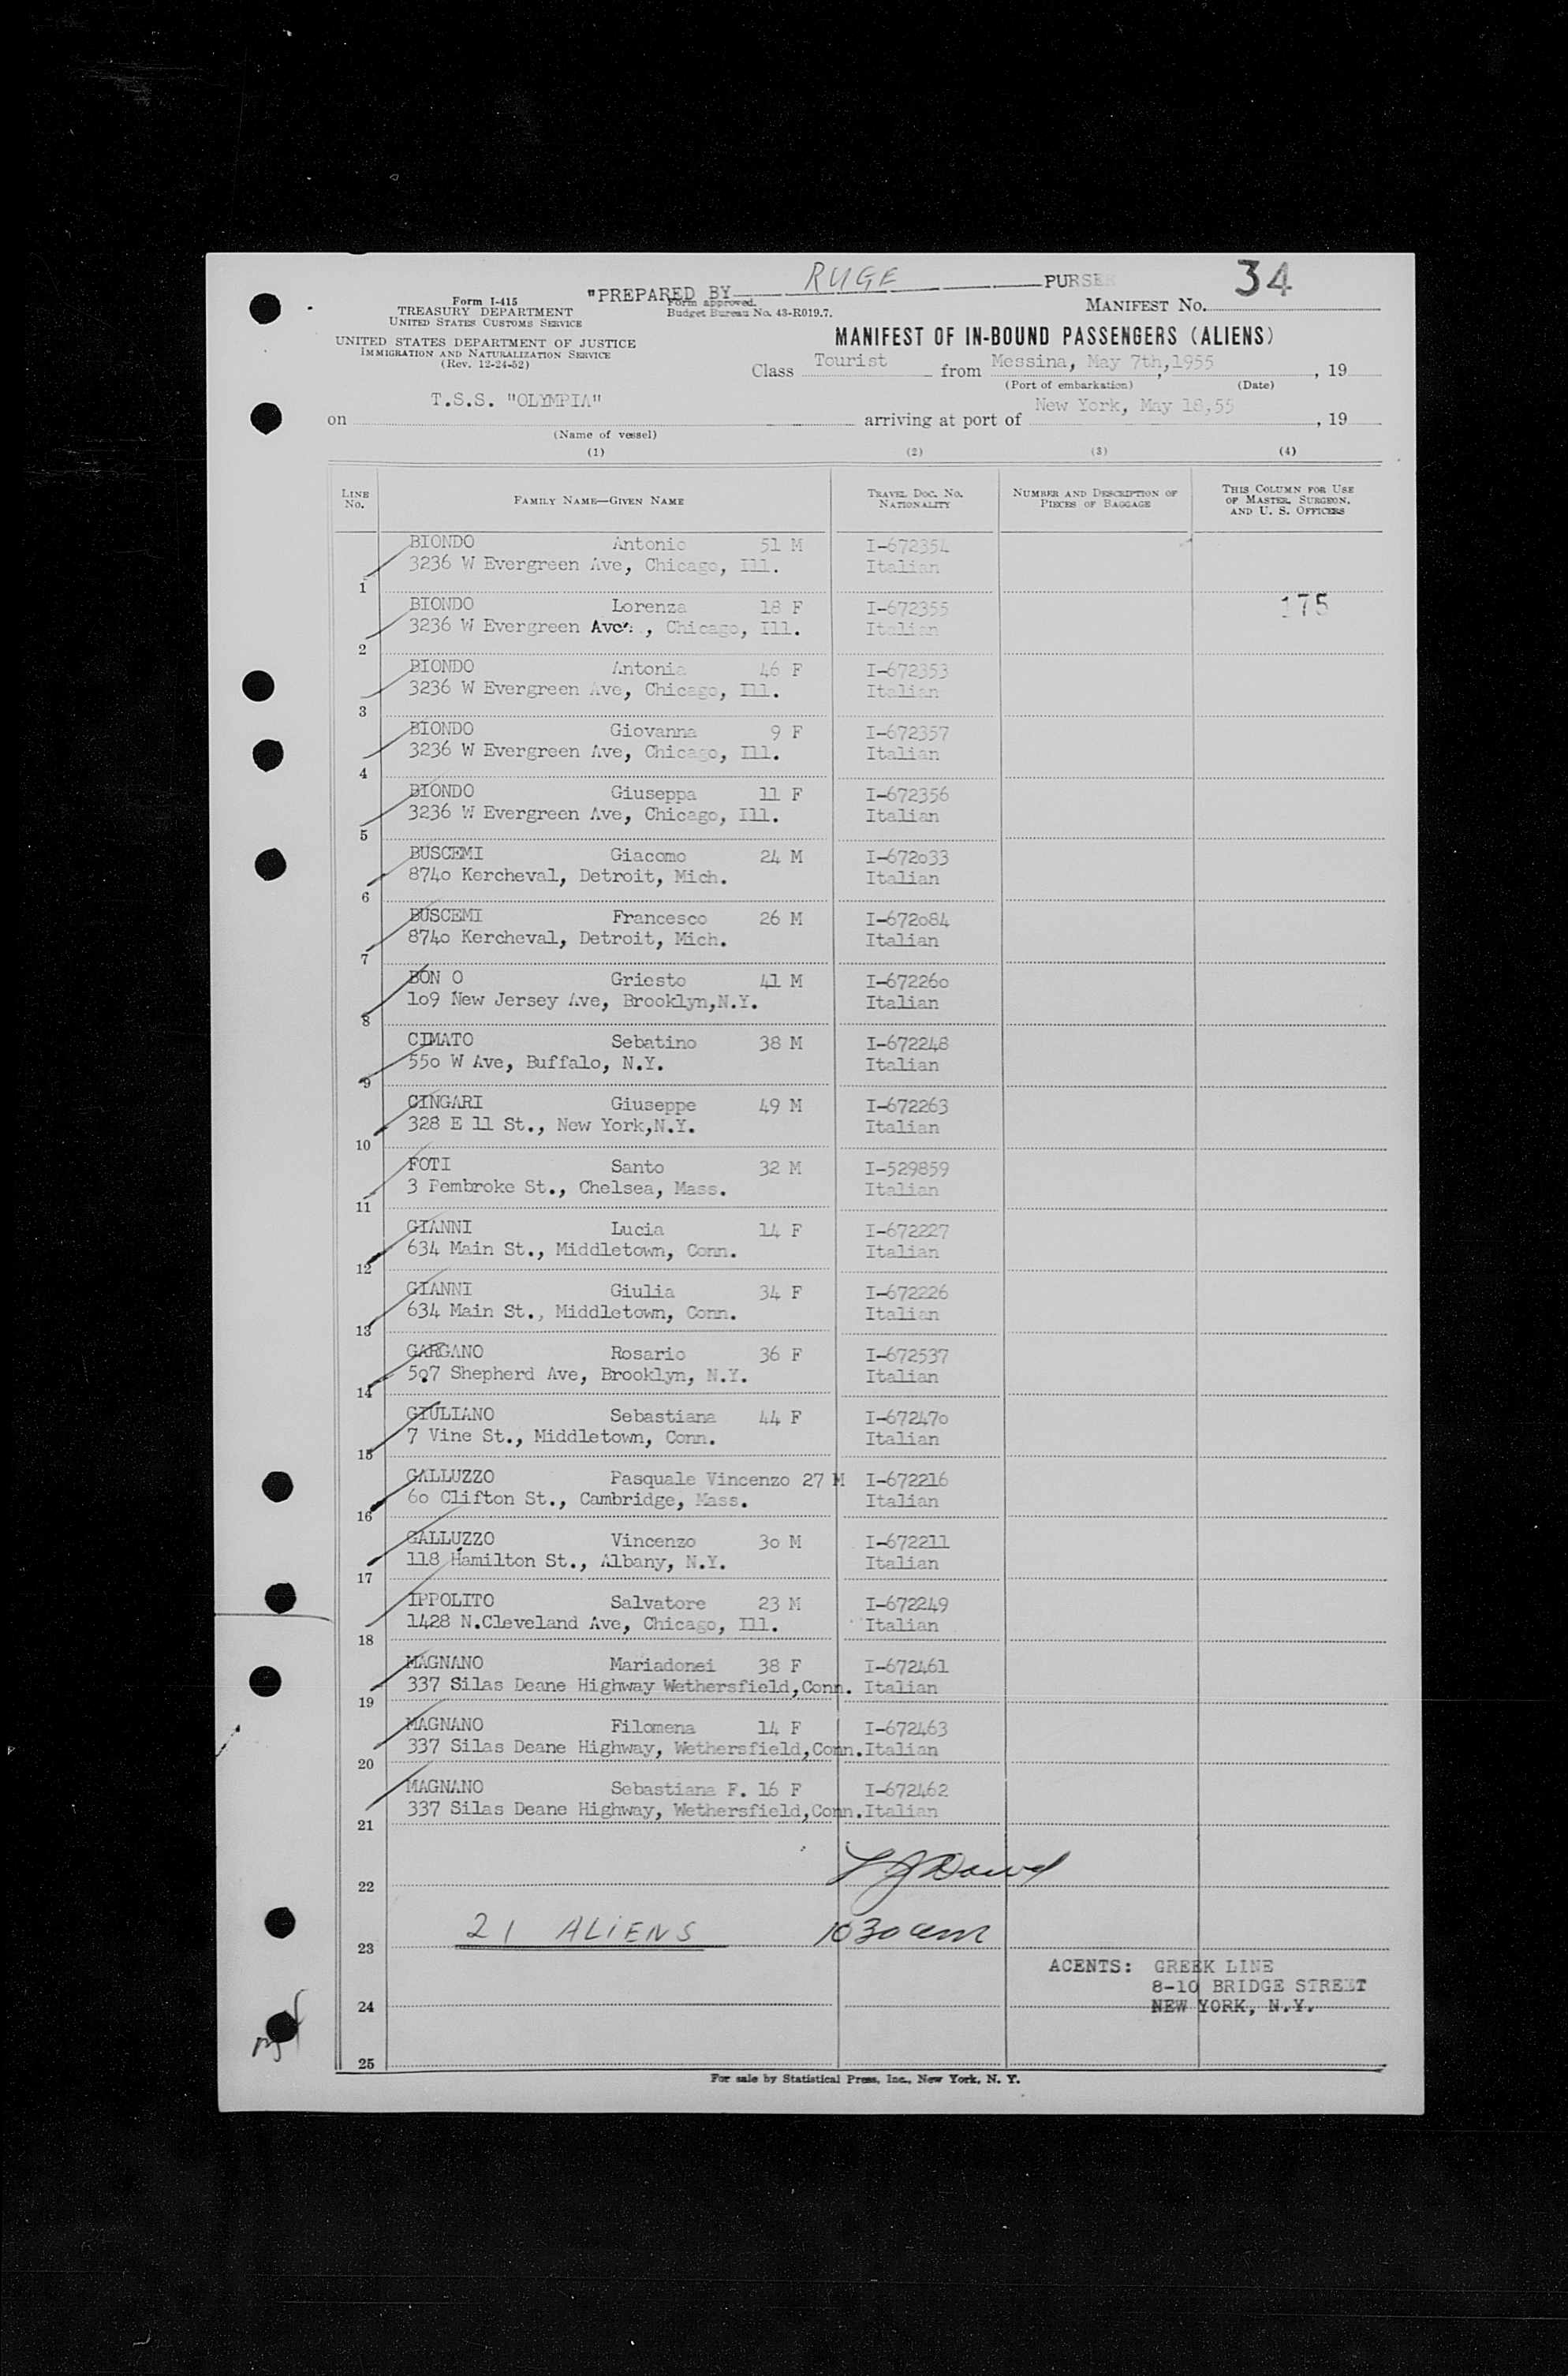 "PREPARED BY RUGE PURSER
34
Form I-415
TREASURY DEPARTMENT
UNITED STATES CUSTOMS SERVICE
Form approved.
Budget Bureau No. 43-R019.7.
MANIFEST No.
UNITED STATES DEPARTMENT OF JUSTICE
IMMIGRATION AND NATURALIZATION SERVICE
(Rev. 12-24-52)
MANIFEST OF IN-BOUND PASSENGERS (ALIENS)
Class Tourist from Messina, May 7th,1955, 19
(Port of embarkation) (Date)
on T.S.S. "OLYMPIA" arriving at port of New York, May 18,55, 19
(Name of vessel)
(1) (2) (3) (4)
LINE No. FAMILY NAME—GIVEN NAME TRAVEL DOC. No. NATIONALITY NUMBER AND DESCRIPTION OF PIECES OF BAGGAGE THIS COLUMN FOR USE OF MASTER, SURGEON, AND U. S. OFFICERS
BIONDO Antonio 51 M I-672354
3236 W Evergreen Ave, Chicago, Ill. Italian
1
BIONDO Lorenza 18 F I-672355 175
3236 W Evergreen Ave, Chicago, Ill. Italian
2
BIONDO Antonia 46 F I-672353
3236 W Evergreen Ave, Chicago, Ill. Italian
3
BIONDO Giovanna 9 F I-672357
3236 W Evergreen Ave, Chicago, Ill. Italian
4
BIONDO Giuseppa 11 F I-672356
3236 W Evergreen Ave, Chicago, Ill. Italian
5
BUSCEMI Giacomo 24 M I-672033
8740 Kercheval, Detroit, Mich. Italian
6
BUSCEMI Francesco 26 M I-672084
8740 Kercheval, Detroit, Mich. Italian
7
BON O Griesto 41 M I-672260
109 New Jersey Ave, Brooklyn,N.Y. Italian
8
CIMATO Sebatino 38 M I-672248
550 W Ave, Buffalo, N.Y. Italian
9
CINGARI Giuseppe 49 M I-672263
328 E 11 St., New York,N.Y. Italian
10
FOTI Santo 32 M I-529859
3 Pembroke St., Chelsea, Mass. Italian
11
GIANNI Lucia 14 F I-672227
634 Main St., Middletown, Conn. Italian
12
GIANNI Giulia 34 F I-672226
634 Main St., Middletown, Conn. Italian
13
GARGANO Rosario 36 F I-672537
507 Shepherd Ave, Brooklyn, N.Y. Italian
14
GIULIANO Sebastiana 44 F I-672470
7 Vine St., Middletown, Conn. Italian
15
GALLUZZO Pasquale Vincenzo 27 M I-672216
60 Clifton St., Cambridge, Mass. Italian
16
GALLUZZO Vincenzo 30 M I-672211
118 Hamilton St., Albany, N.Y. Italian
17
IPPOLITO Salvatore 23 M I-672249
1428 N.Cleveland Ave, Chicago, Ill. Italian
18
MAGNANO Mariadonei 38 F I-672461
337 Silas Deane Highway Wethersfield,Conn. Italian
19
MAGNANO Filomena 14 F I-672463
337 Silas Deane Highway, Wethersfield,Conn.Italian
20
MAGNANO Sebastiana F. 16 F I-672462
337 Silas Deane Highway, Wethersfield,Conn.Italian
21
22
21 ALIENS 1030 am
23
ACENTS: GREEK LINE
8-10 BRIDGE STREET
24 NEW YORK, N.Y.
25
For sale by Statistical Press, Inc., New York, N. Y.